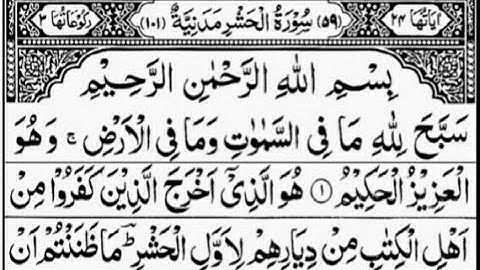 اٰيَاتُهَا ٢٤ (٥٩) سُوْرَةُ الْحَشْرِ مَدَنِيَّةٌ (١٠١) رُكُوْعَاتُهَا ٣
بِسْمِ اللهِ الرَّحْمٰنِ الرَّحِيْمِ
سَبَّحَ لِلّٰهِ مَا فِى السَّمٰوٰتِ وَمَا فِى الْاَرْضِ ۚ وَهُوَ
الْعَزِيْزُ الْحَكِيْمُ ① هُوَ الَّذِىْٓ اَخْرَجَ الَّذِيْنَ كَفَرُوْا مِنْ
اَهْلِ الْكِتٰبِ مِنْ دِيَارِهِمْ لِاَوَّلِ الْحَشْرِ ؕ مَا ظَنَنْتُمْ اَنْ